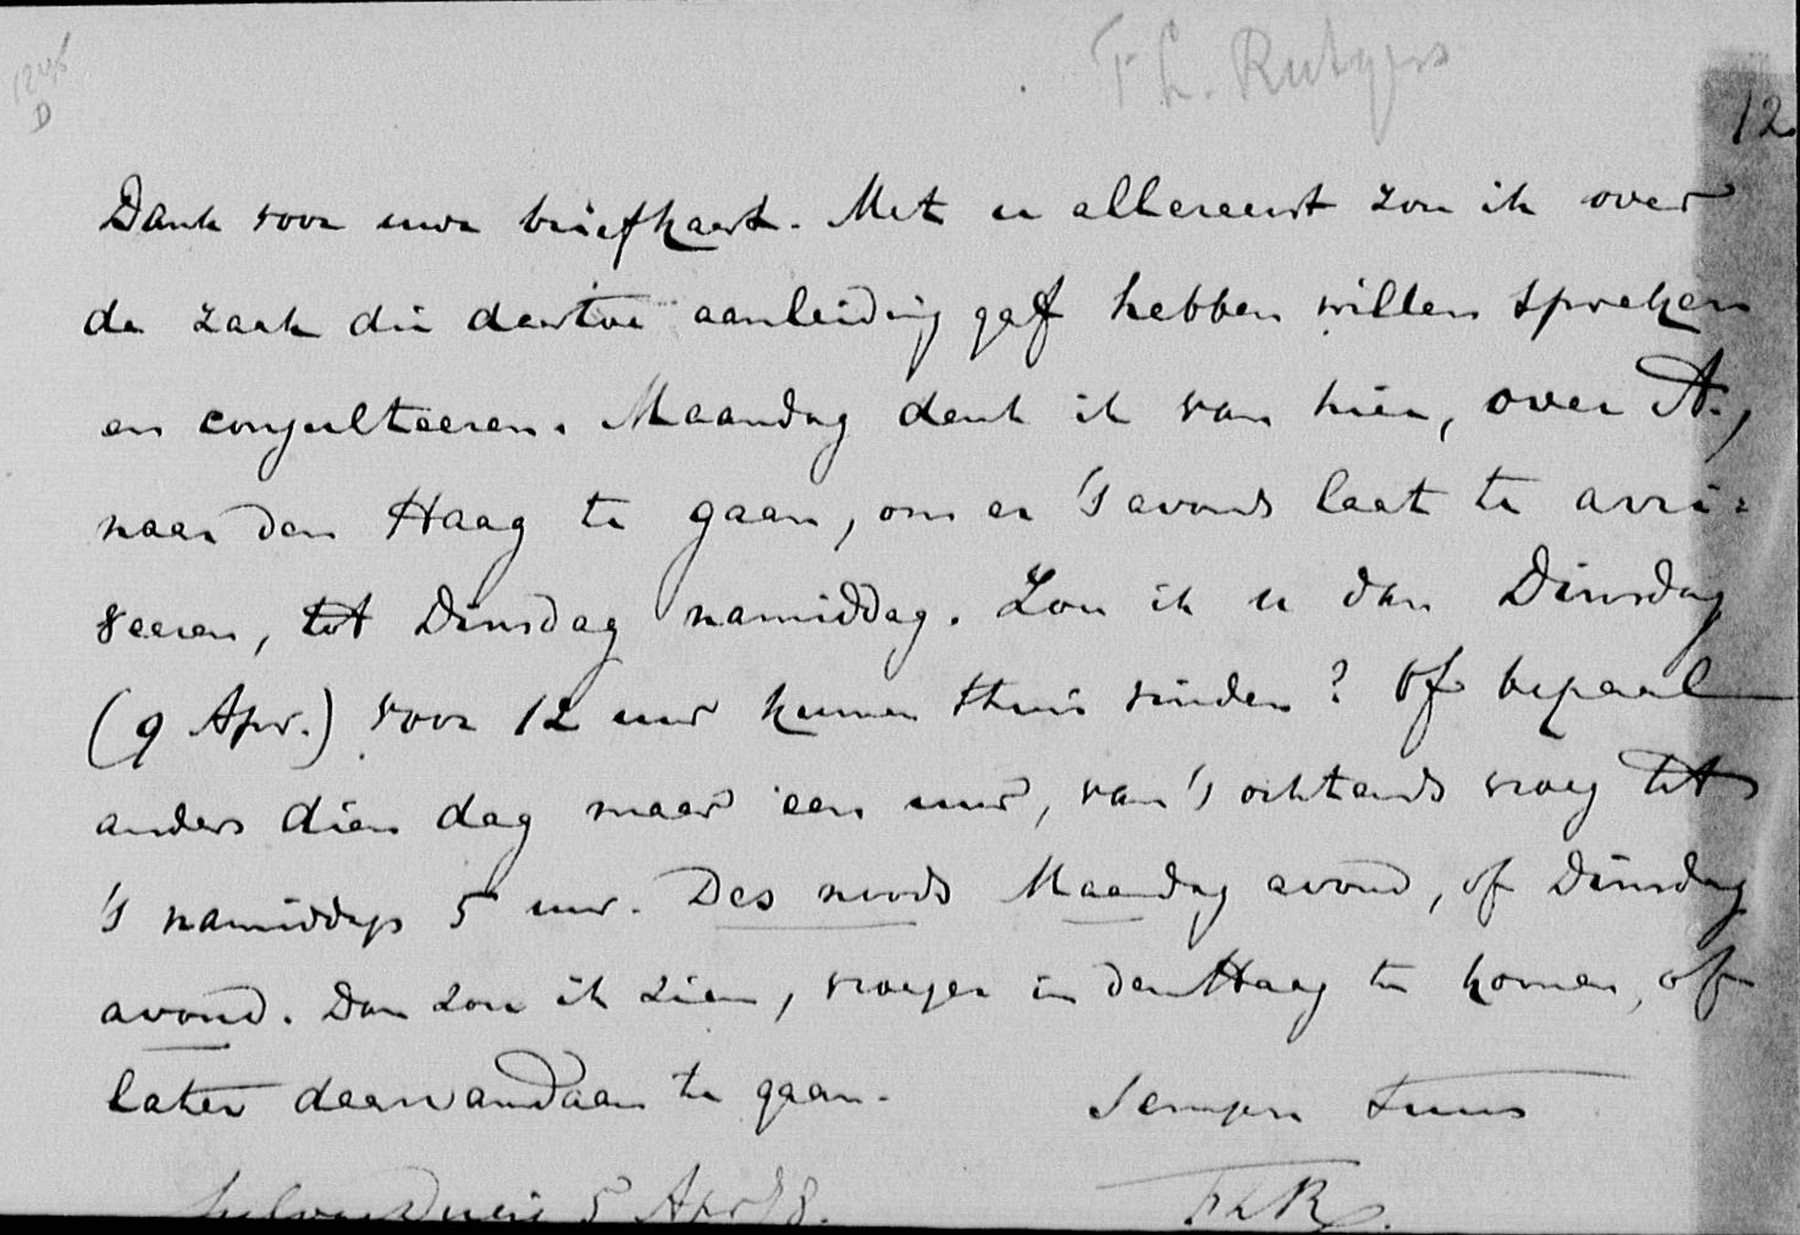 F L. Rutgers
12
D
Dank voor uwe briefkaart. Met u allereerst zou ik over
de zaak die daartoe aanleiding gaf hebben willen spreken
en consulteeren. Maandag denk ik van hier, over A.,
naar den Haag te gaan, om er 's avonds laat te arri-
veeren, tot Dinsdag namiddag. Zou ik u dan Dinsdag
(9 Apr.) voor 12 uur kunnen thuis vinden? Of bepaal
anders dien dag maar een uur, van 's ochtends vroeg tot
's namiddags 5 uur. Des noods Maandag avond, of Dinsdag
avond. Dan zou ik zien, vroeger in den Haag te komen, of
later daarvandaan te gaan.
Semper tuus
5 Apr 78.
FLR.